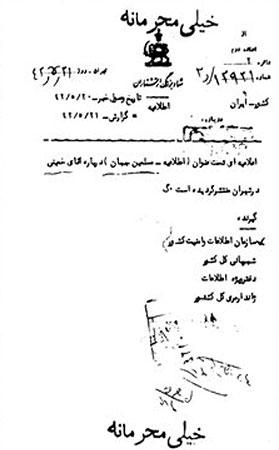 خیلی محرمانه
از
اداره دوم
دایره
شماره ۱۲۹۲۱/د۳
ستاد بزرگ ارتشتاران
کشور ایران
اطلاعیه
تاریخ وصول خبر ـ ۴۲/۵/۲۰
" گزارش ـ ۴۲/۵/۲۱
درباره
اعلامیه ای تحت عنوان (اطلاعیه ـ مسلمین جهان) درباره آقای خمینی
در تهران منتشر گردیده است گ
گیرنده
سازمان اطلاعات وامنیت کشور
شهربانی کل کشور
دفتر ویژه اطلاعات
ژاندارمری کل کشور
خیلی محرمانه